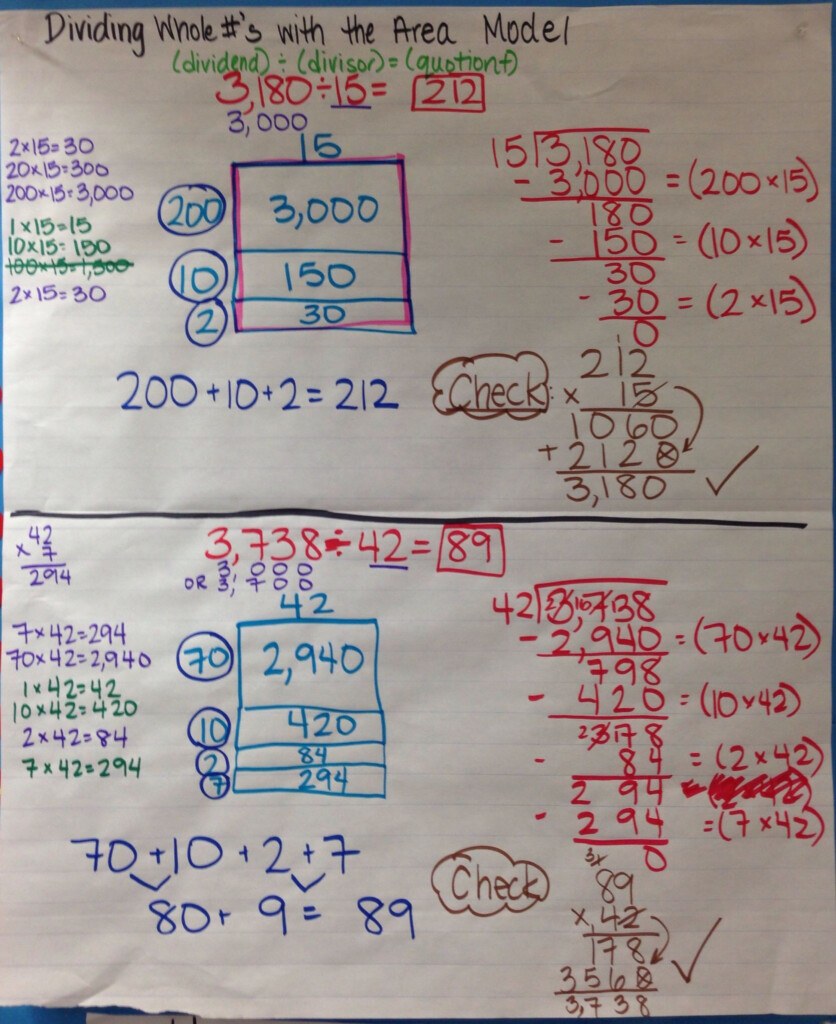 Dividing Whole #'s with the Area Model
(dividend) ÷ (divisor) = (quotient)
3,180 ÷ 15 = 212
3,000
2×15=30
20×15=300
200×15=3,000
1×15=15
10×15=150
100×15=1,500
2×15=30
15
200 3,000
10 150
2 30
200+10+2=212
15 3,180
- 3,000 = (200×15)
180
- 150 = (10×15)
30
- 30 = (2×15)
0
Check:
1
212
× 15
1060
+ 2120
3,180 ✓
42
× 7
294
3,738 ÷ 42 = 89
3,000
OR 3,700
7×42=294
70×42=2,940
1×42=42
10×42=420
2×42=84
7×42=294
42
70 2,940
10 420
2 84
7 294
70+10+2+7
80+9=89
42 3,738
- 2,940 = (70×42)
798
- 420 = (10×42)
378
- 84 = (2×42)
294
- 294 = (7×42)
0
Check
89
× 42
178
3560
3,738 ✓